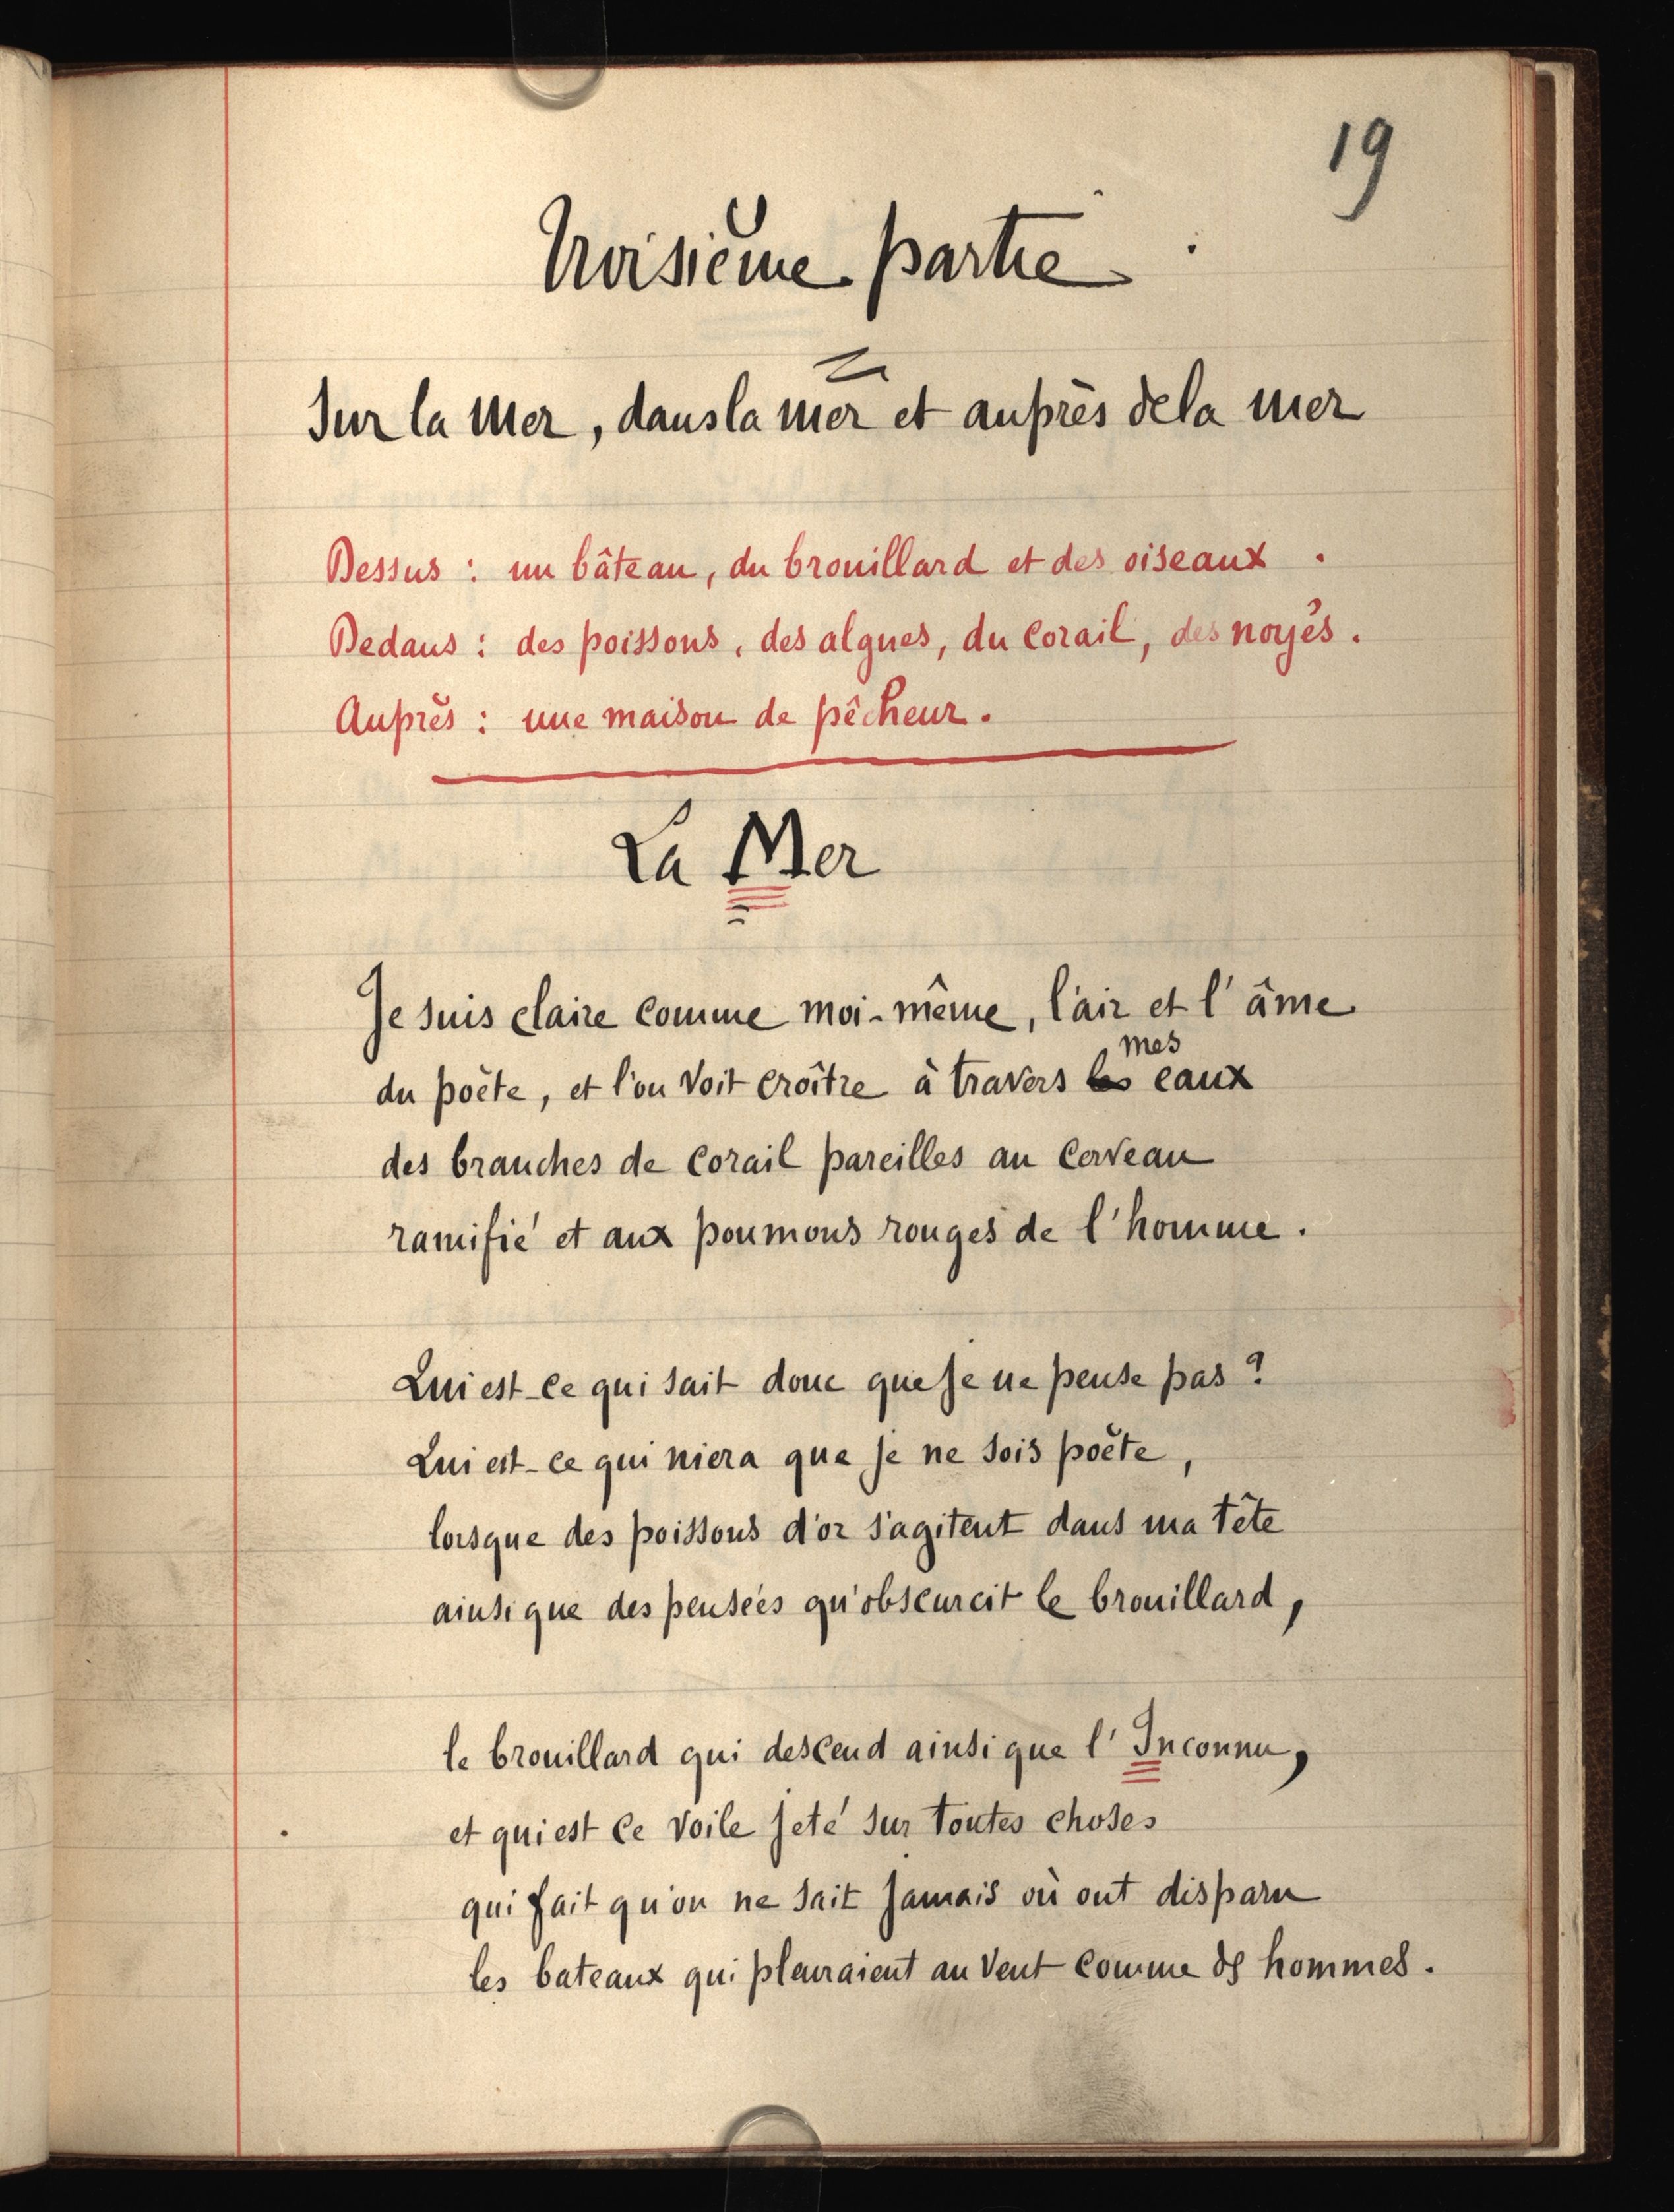 19
Troisième partie
Sur la Mer, dans la mer et auprès de la mer
Dessus : un bâteau, du brouillard et des oiseaux.
Dedans : des poissons, des algues, du corail, des noyés.
Auprès : une maison de pêcheur.
La Mer
Je suis claire comme moi-même, l'air et l'âme
mes
du poète, et l'on voit croître à travers les eaux
des branches de corail pareilles au cerveau
ramifié et aux poumons rouges de l'homme.
Qui est-ce qui sait donc que je ne pense pas ?
Qui est-ce qui niera que je ne sois poète,
lorsque des poissons d'or s'agitent dans ma tête
ainsi que des pensées qu'obscurcit le brouillard,
le brouillard qui descend ainsi que l'Inconnu,
et qui est ce voile jeté sur toutes choses
qui fait qu'on ne sait jamais où ont disparu
les bateaux qui pleuraient au vent comme des hommes.